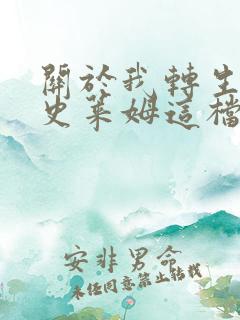 關於我轉生
史萊姆這檔
安非男命
未经同意禁止转载